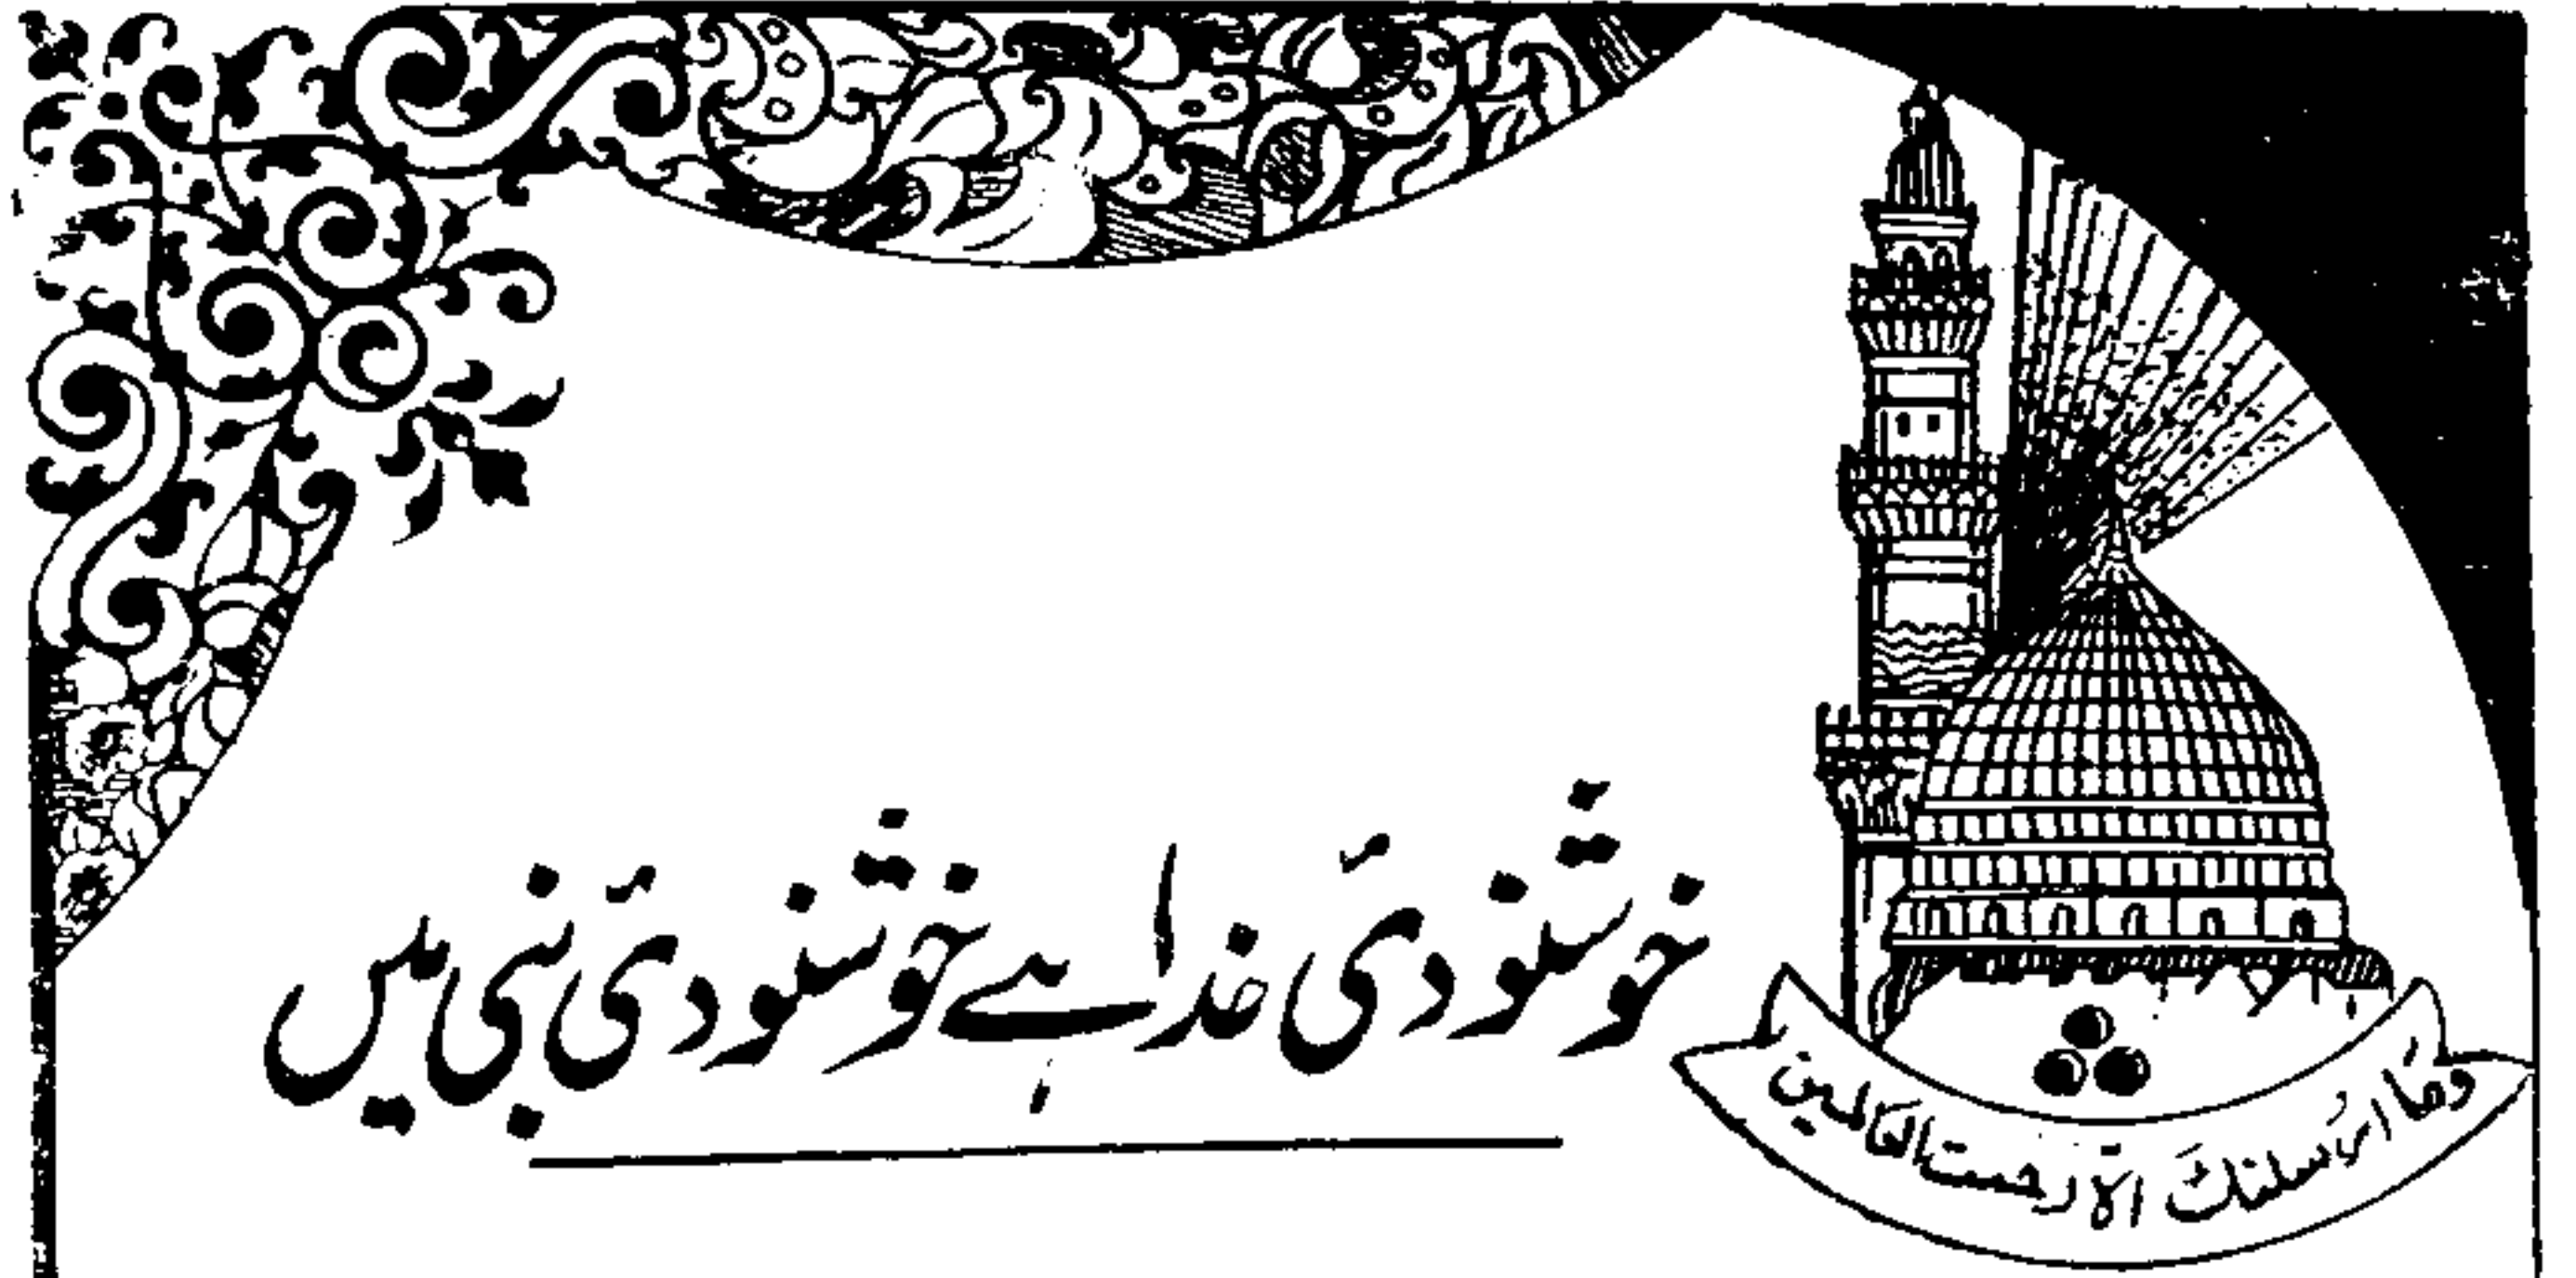 خوشنودیٔ خدا ہے خوشنودیٔ نبی میں
وما ارسلنٰك الّا رحمت العالمین